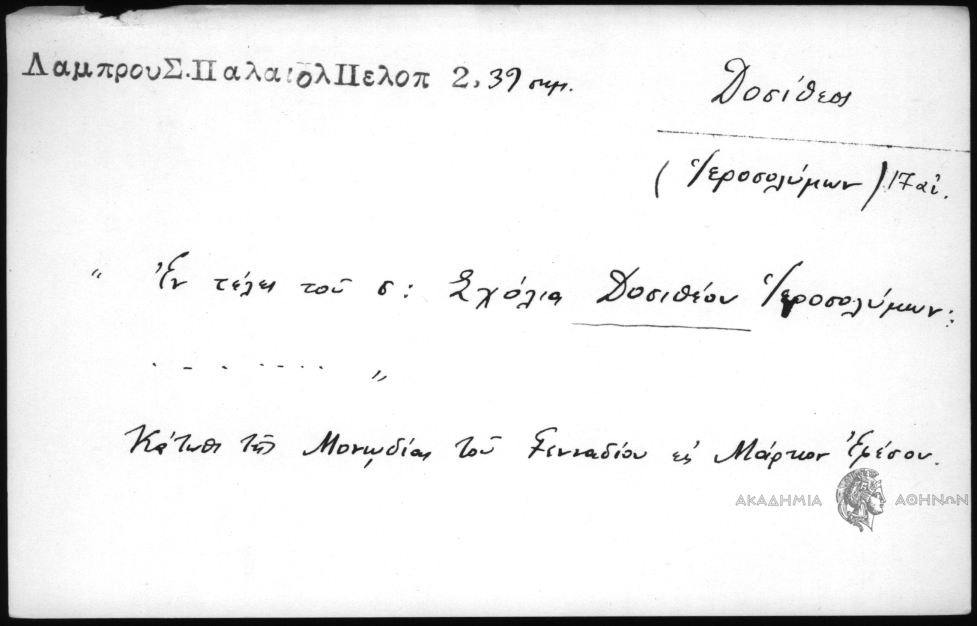 ΛαμπρουΣ.ΠαλαιολΠελοπ 2,39 σημ.
Δοσίθεος
(Ἱεροσολύμων) 17 αἰ.
" Ἐν τέλει τοῦ σ: Σχόλια Δοσιθέου Ἱεροσολύμων:
. - . - . . . . . "
Κάτωθι τῆς Μονῳδίας τοῦ Γενναδίου εἰς Μάρκον Ἐφέσου.
ΑΚΑΔΗΜΙΑ ΑΘΗΝΩΝ